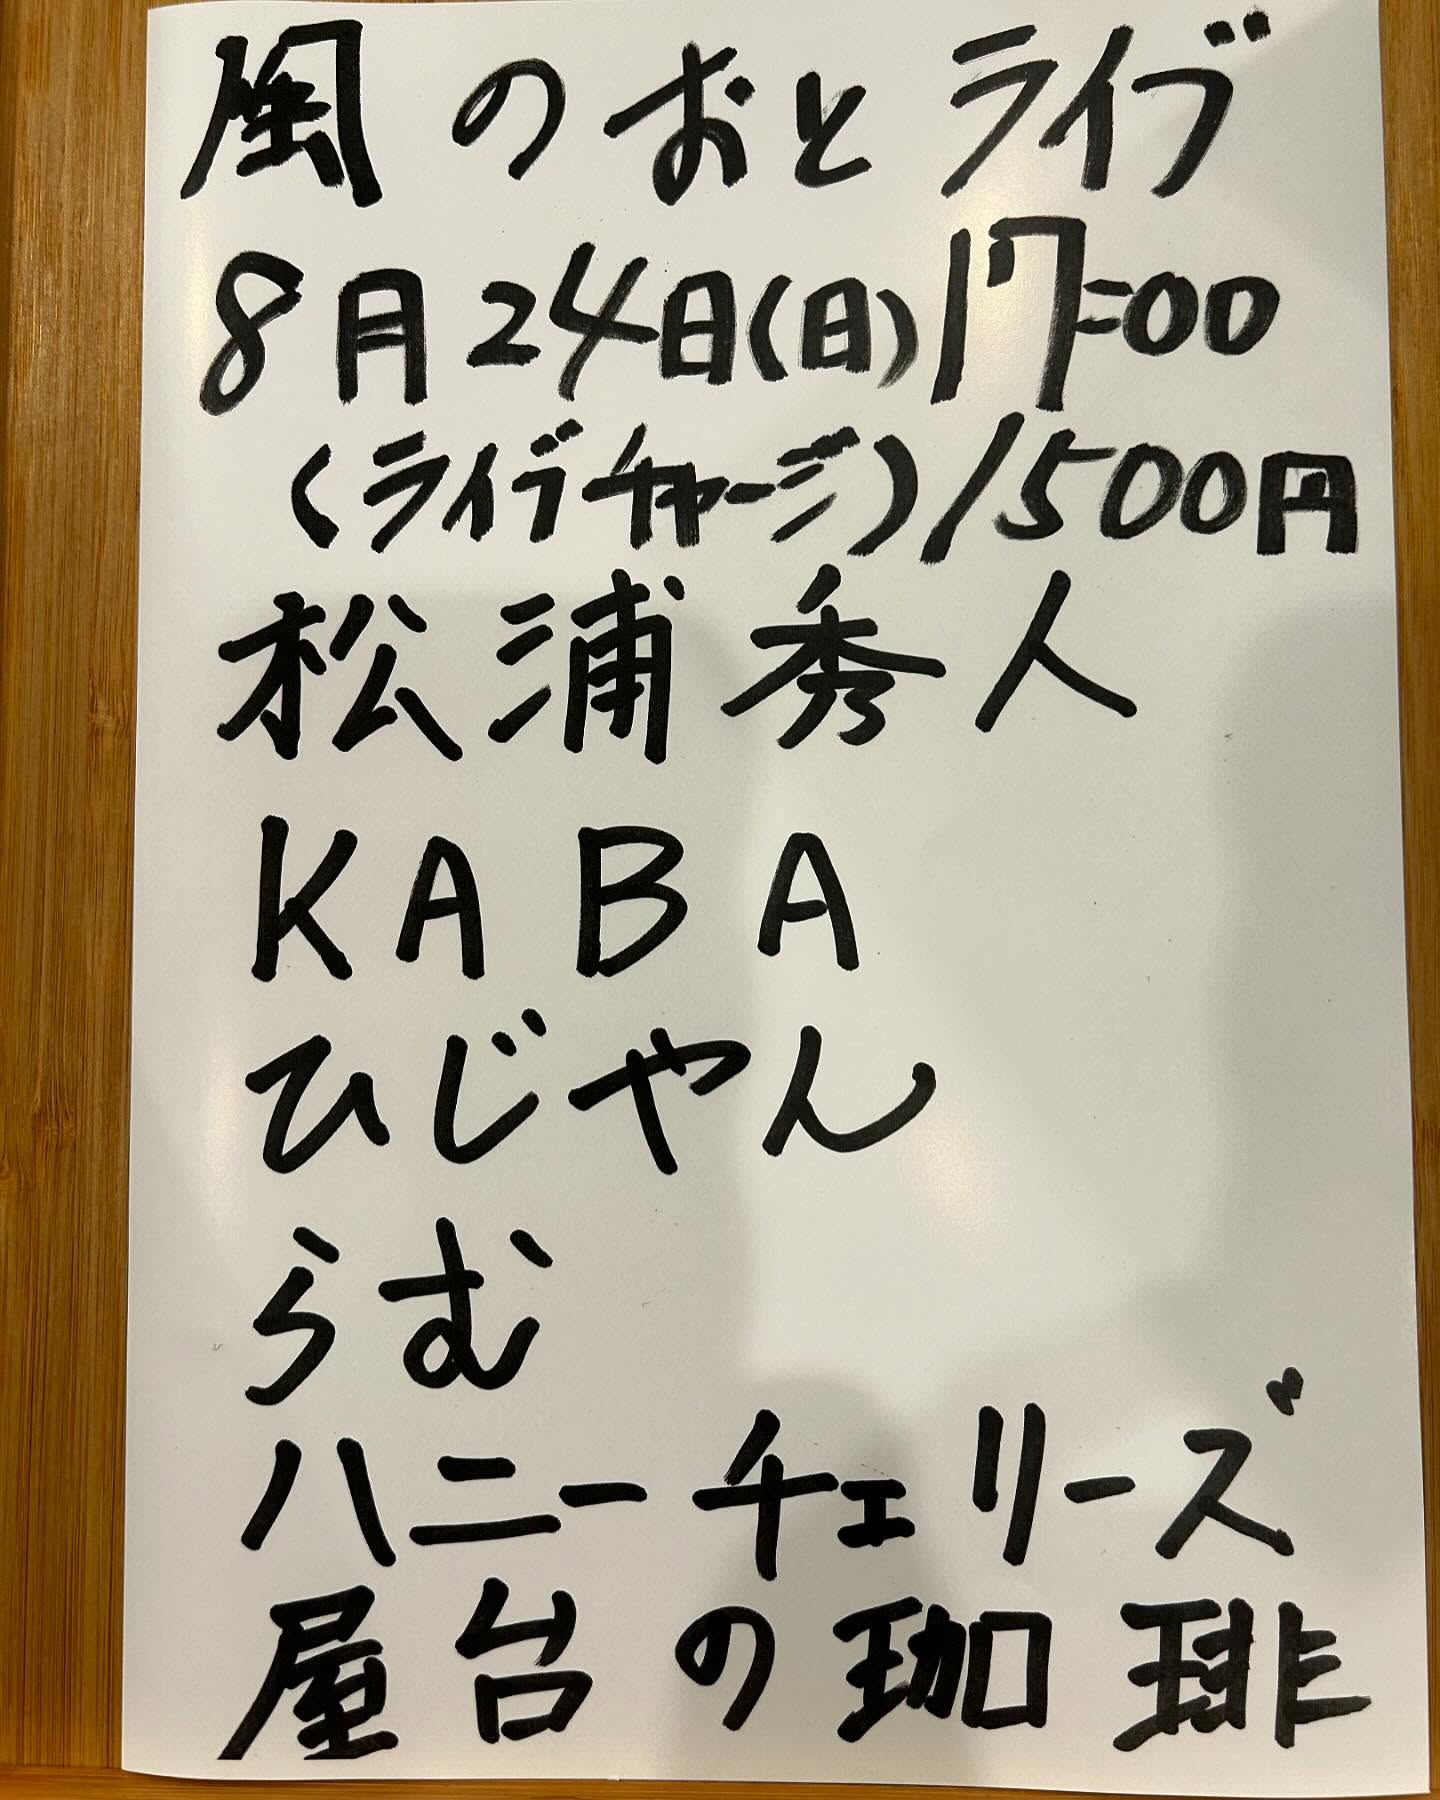 風のおとライブ
8月24日(日)17:00
(ライブチャージ)1500円
松浦秀人
KABA
ひじやん
らむ
ハニーチェリーズ
屋台の珈琲